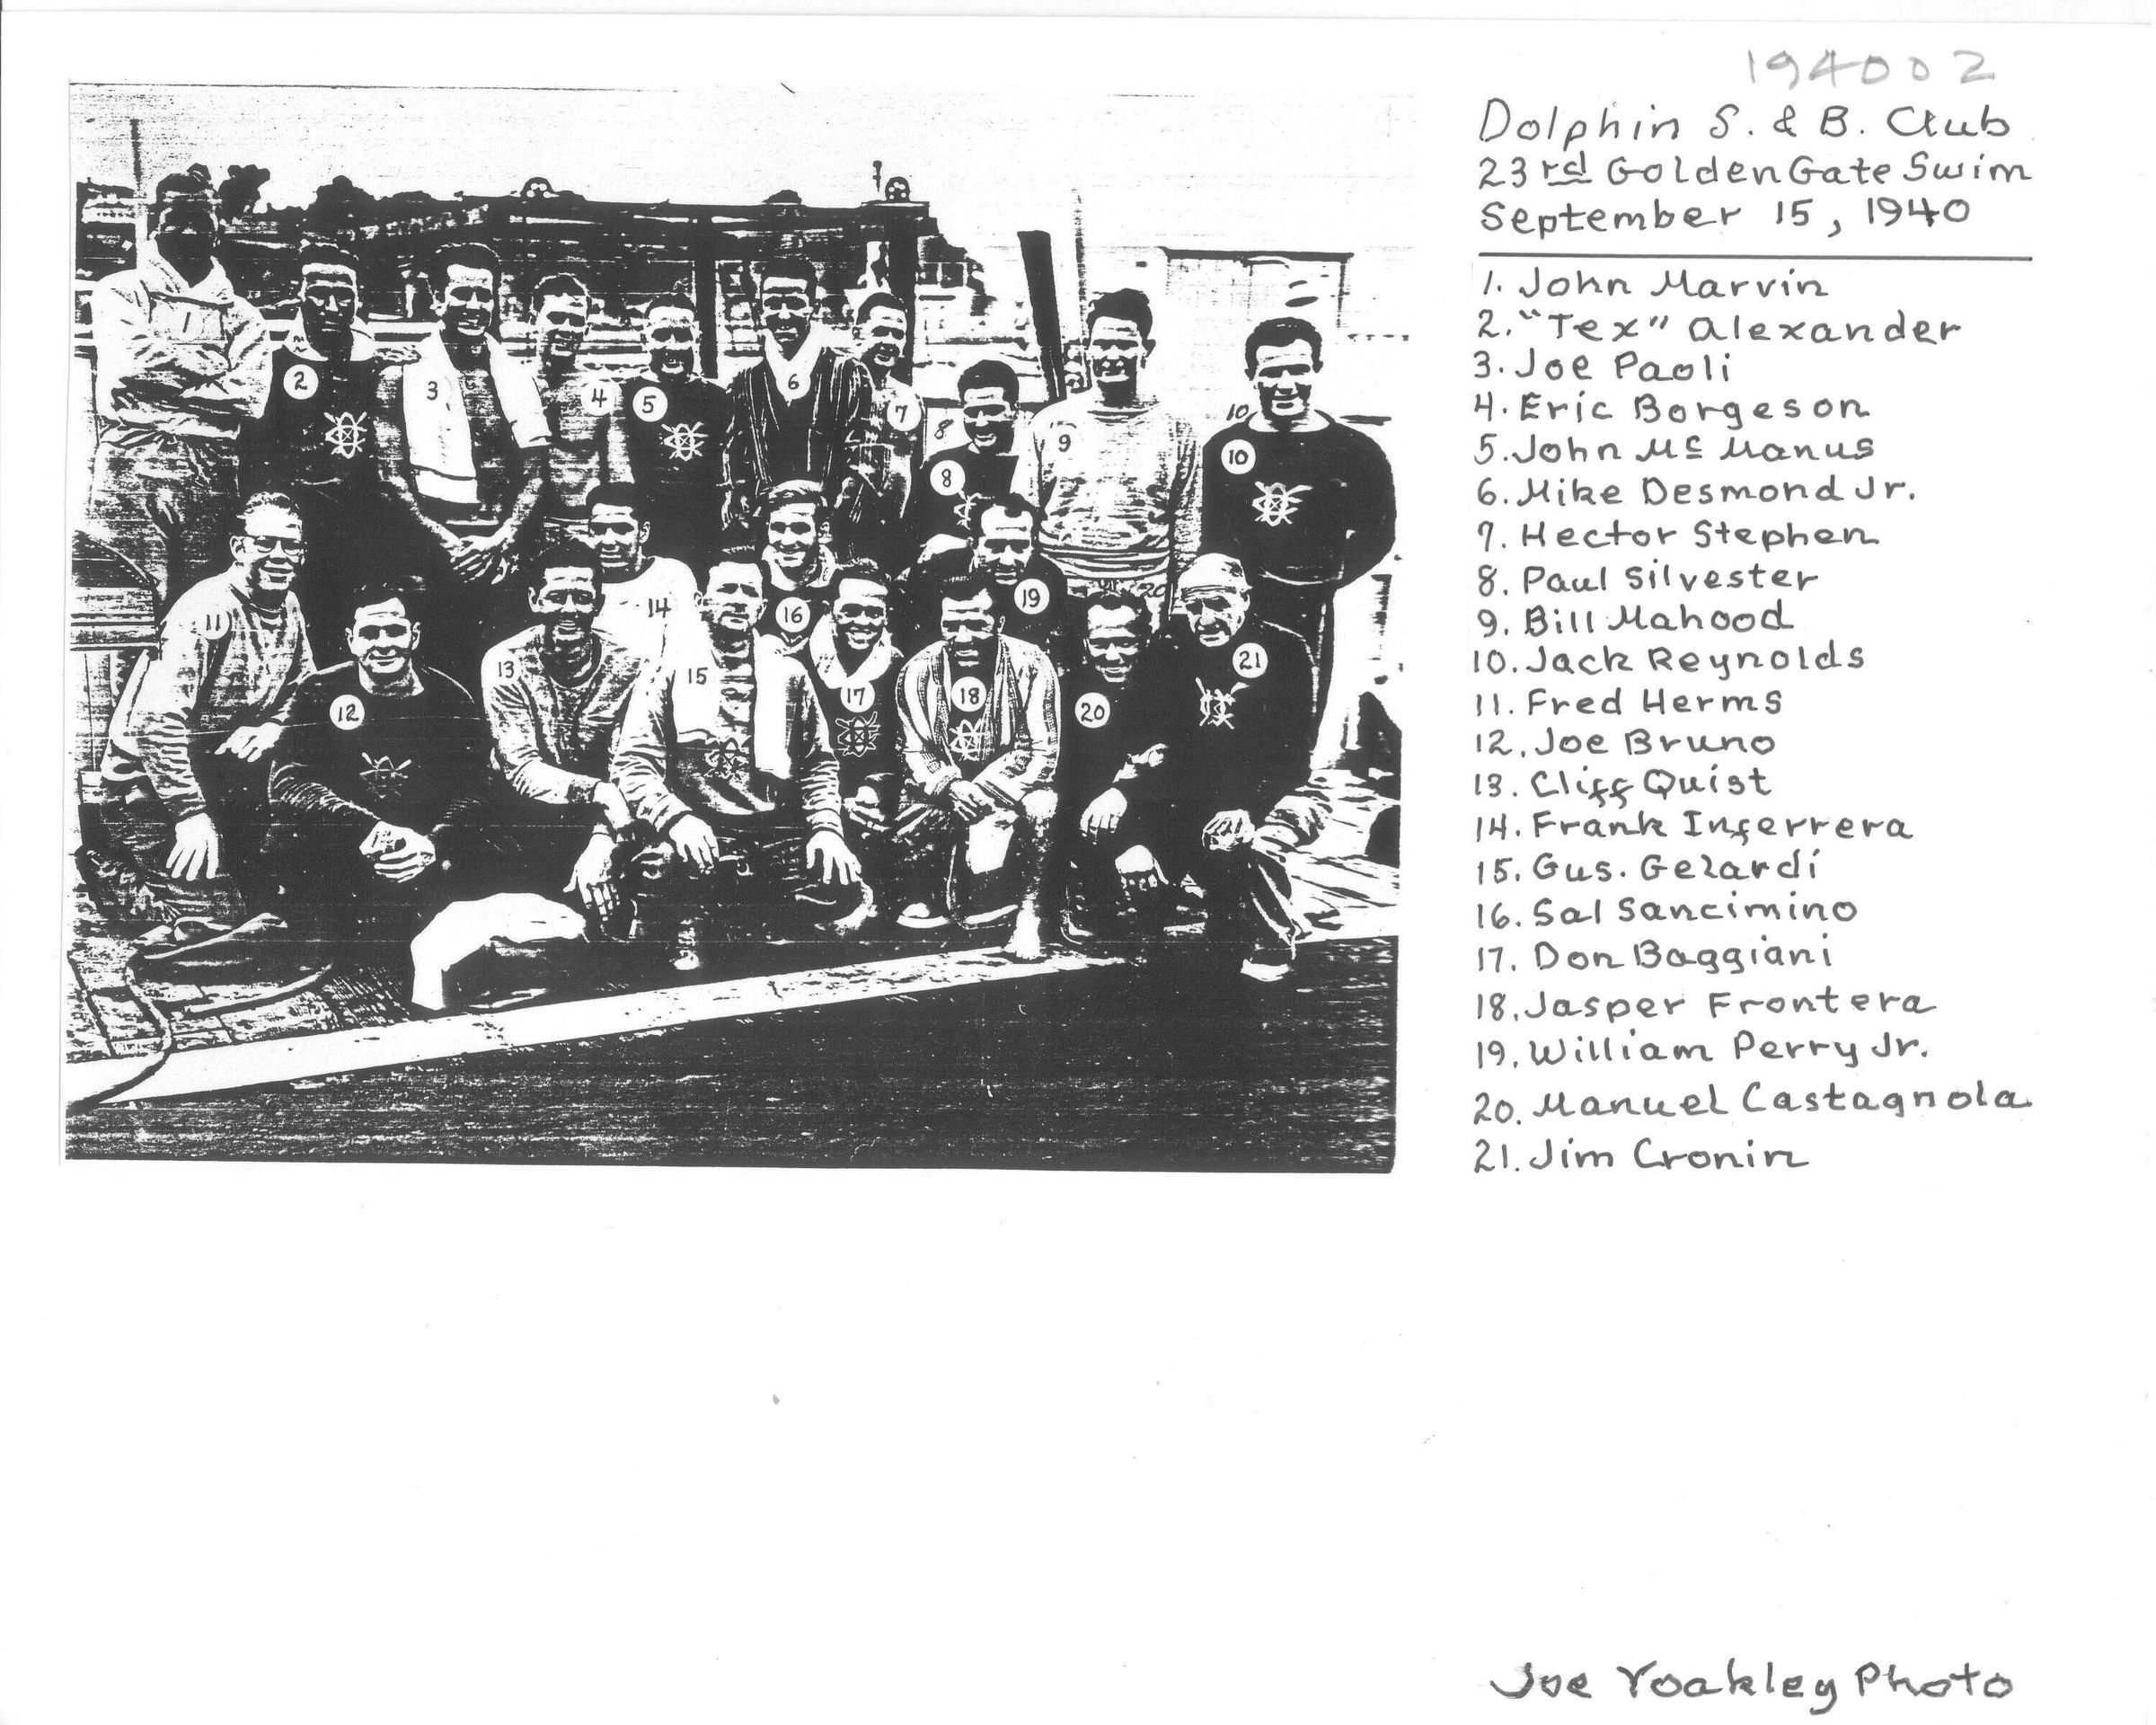 194002
Dolphin S. & B. Club
23rd Golden Gate Swim
September 15, 1940
1. John Marvin
2. "Tex" Alexander
3. Joe Paoli
4. Eric Borgeson
5. John Mc Manus
6. Mike Desmond Jr.
7. Hector Stephen
8. Paul Silvester
9. Bill Mahood
10. Jack Reynolds
11. Fred Herms
12. Joe Bruno
13. Cliff Quist
14. Frank Inferrera
15. Gus. Gelardi
16. Sal Sancimino
17. Don Baggiani
18. Jasper Frontera
19. William Perry Jr.
20. Manuel Castagnola
21. Jim Cronin
1
2
3
4
5
6
7
8
8
9
10
10
11
12
13
14
15
16
17
18
19
20
20
21
Joe Yoakley Photo